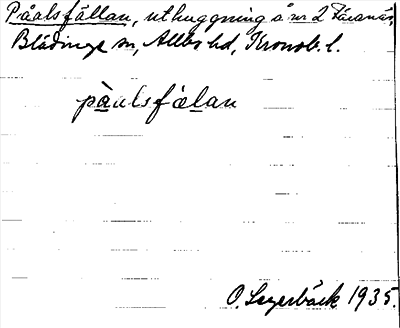 Påalsfällan, uthuggning å nr 2 Täranäs,
Blädinge sn, Allbo hd, Kronob. l.
pàulsfælan
O. Lagerbäck 1935.